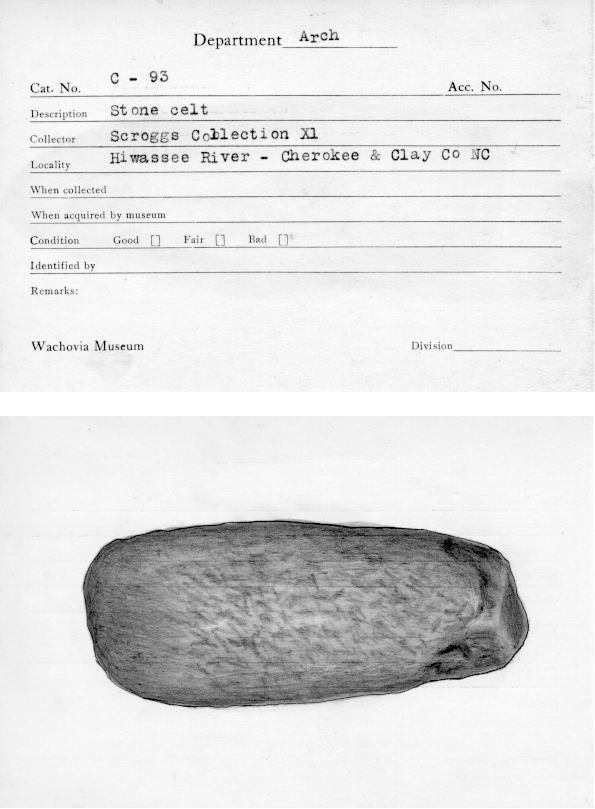 Department Arch
Cat. No. C - 93 Acc. No.
Description Stone celt
Collector Scroggs Collection X1
Locality Hiwassee River - Cherokee & Clay Co NC
When collected
When acquired by museum
Condition Good [] Fair [] Bad []
Identified by
Remarks:
Wachovia Museum Division